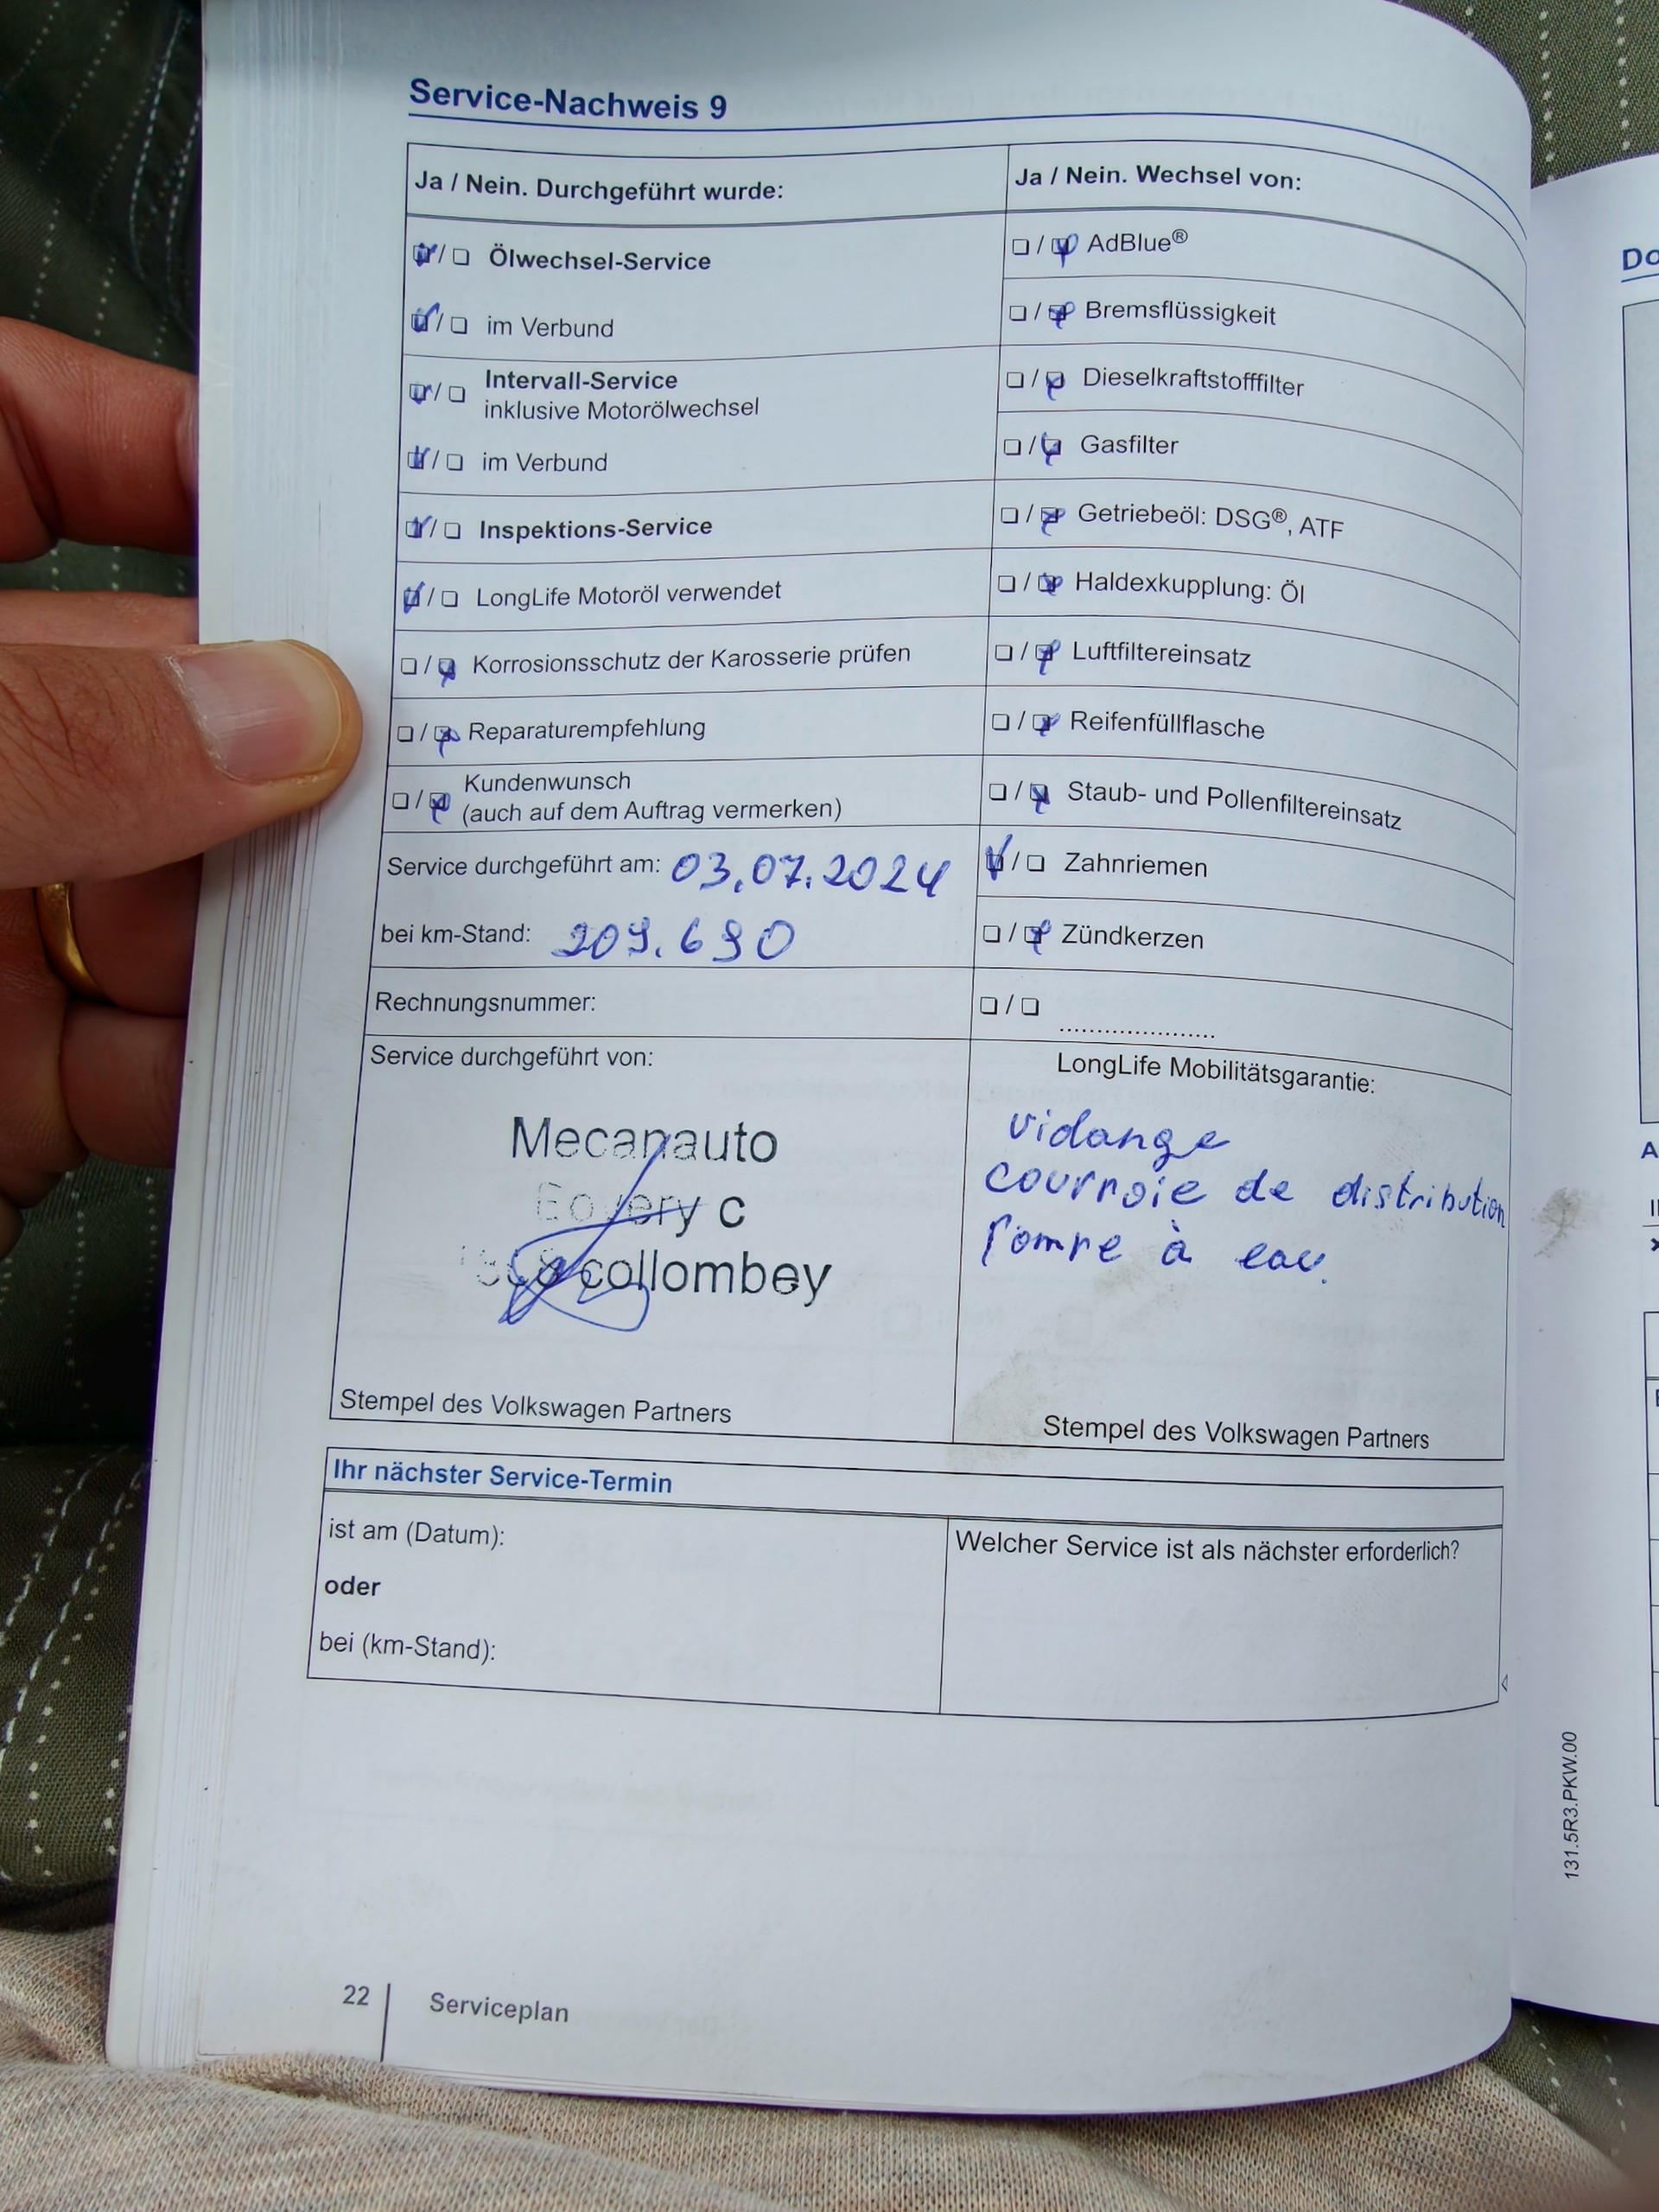 Service-Nachweis 9
Ja / Nein. Durchgeführt wurde:
☑/☐ Ölwechsel-Service
☑/☐ im Verbund
☑/☐ Intervall-Service
inklusive Motorölwechsel
☑/☐ im Verbund
☑/☐ Inspektions-Service
☑/☐ LongLife Motoröl verwendet
☐/☑ Korrosionsschutz der Karosserie prüfen
☐/☑ Reparaturempfehlung
☐/☑ Kundenwunsch
(auch auf dem Auftrag vermerken)
Service durchgeführt am: 03.07.2024
bei km-Stand: 209.690
Rechnungsnummer:
Service durchgeführt von:
Mecanauto
c
collombey
Stempel des Volkswagen Partners
Ja / Nein. Wechsel von:
☐/☑ AdBlue®
☐/☑ Bremsflüssigkeit
☐/☑ Dieselkraftstofffilter
☐/☑ Gasfilter
☐/☑ Getriebeöl: DSG®, ATF
☐/☑ Haldexkupplung: Öl
☐/☑ Luftfiltereinsatz
☐/☑ Reifenfüllflasche
☐/☑ Staub- und Pollenfiltereinsatz
☑/☐ Zahnriemen
☐/☑ Zündkerzen
☐/☐ .....................
LongLife Mobilitätsgarantie:
vidange
courroie de distribution
Pompe à eau.
Stempel des Volkswagen Partners
Ihr nächster Service-Termin
ist am (Datum):
oder
bei (km-Stand):
Welcher Service ist als nächster erforderlich?
22
Serviceplan
131.5R3.PKW.00
Do